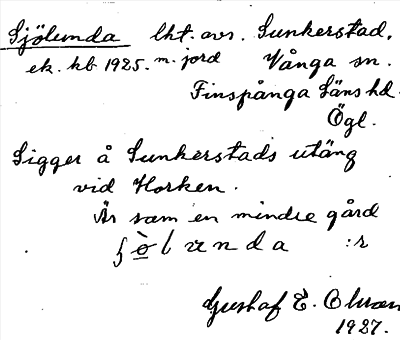 Sjölunda lht. avs. Sunkerstad,
ek. kb 1925. m. jord Vånga sn.
Finspånga Läns hd.
Ögl.
Ligger å Sunkerstads utäng
vid Horken.
Är som en mindre gård
:r
Gustaf E. Olsson
1927.